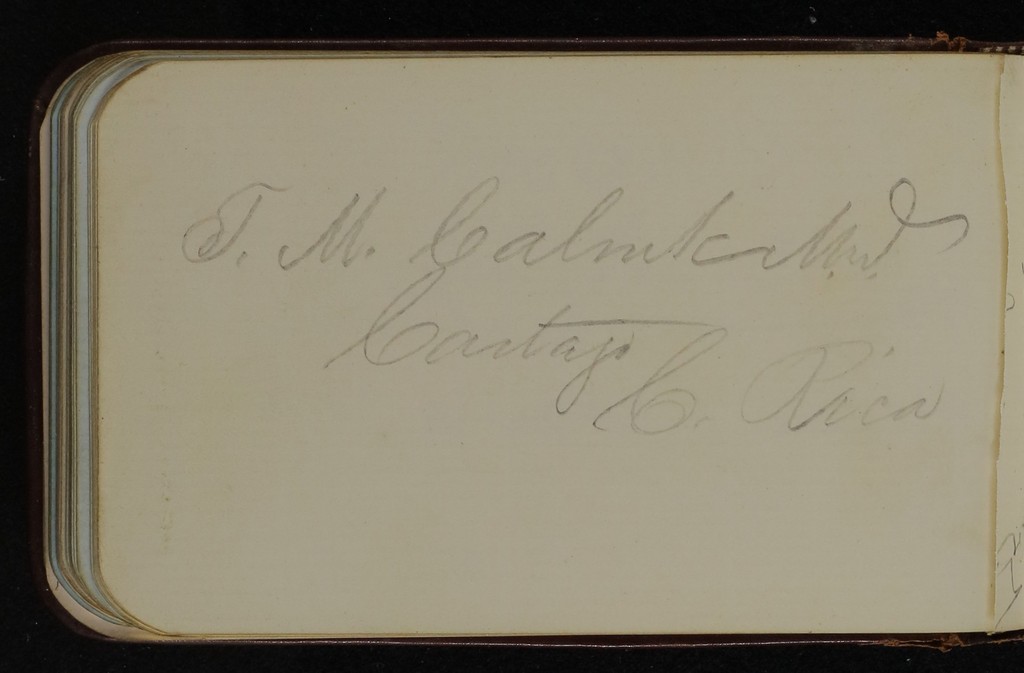 T. M. Calnek M.d.
Cartago
C. Rica